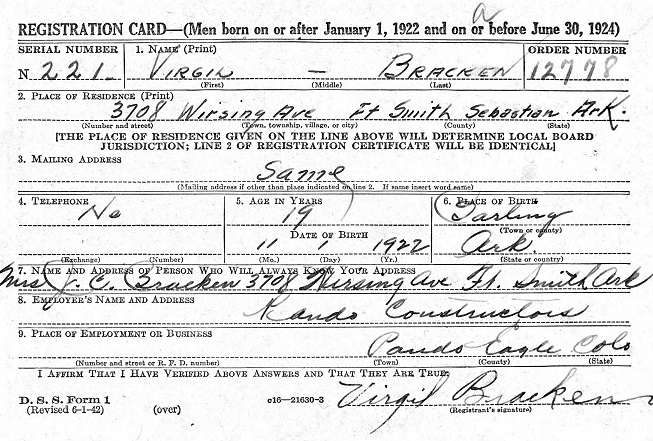 a
REGISTRATION CARD—(Men born on or after January 1, 1922 and on or before June 30, 1924)
SERIAL NUMBER 1. NAME (Print) ORDER NUMBER
N 221 VIRGIL — BRACKEN 12778
(First) (Middle) (Last)
2. PLACE OF RESIDENCE (Print)
3708 Wirsing Ave Ft Smith Sebastian Ark.
(Number and street) (Town, township, village, or city) (County) (State)
[THE PLACE OF RESIDENCE GIVEN ON THE LINE ABOVE WILL DETERMINE LOCAL BOARD
JURISDICTION; LINE 2 OF REGISTRATION CERTIFICATE WILL BE IDENTICAL]
3. MAILING ADDRESS
Same
(Mailing address if other than place indicated on line 2. If same insert word same)
4. TELEPHONE 5. AGE IN YEARS 6. PLACE OF BIRTH
No 19 Barling
(Town or county)
DATE OF BIRTH
11 1 1922 Ark.
(Exchange) (Number) (Mo.) (Day) (Yr.) (State or country)
7. NAME AND ADDRESS OF PERSON WHO WILL ALWAYS KNOW YOUR ADDRESS
Mrs J. C. Bracken 3708 Wirsing Ave Ft. Smith Ark
8. EMPLOYER'S NAME AND ADDRESS
Pando Constructors
9. PLACE OF EMPLOYMENT OR BUSINESS
Pando Eagle Colo
(Number and street or R. F. D. number) (Town) (County) (State)
I AFFIRM THAT I HAVE VERIFIED ABOVE ANSWERS AND THAT THEY ARE TRUE.
D. S. S. Form 1
(Revised 6-1-42) (over) c16—21630-3 Virgil Bracken
(Registrant's signature)